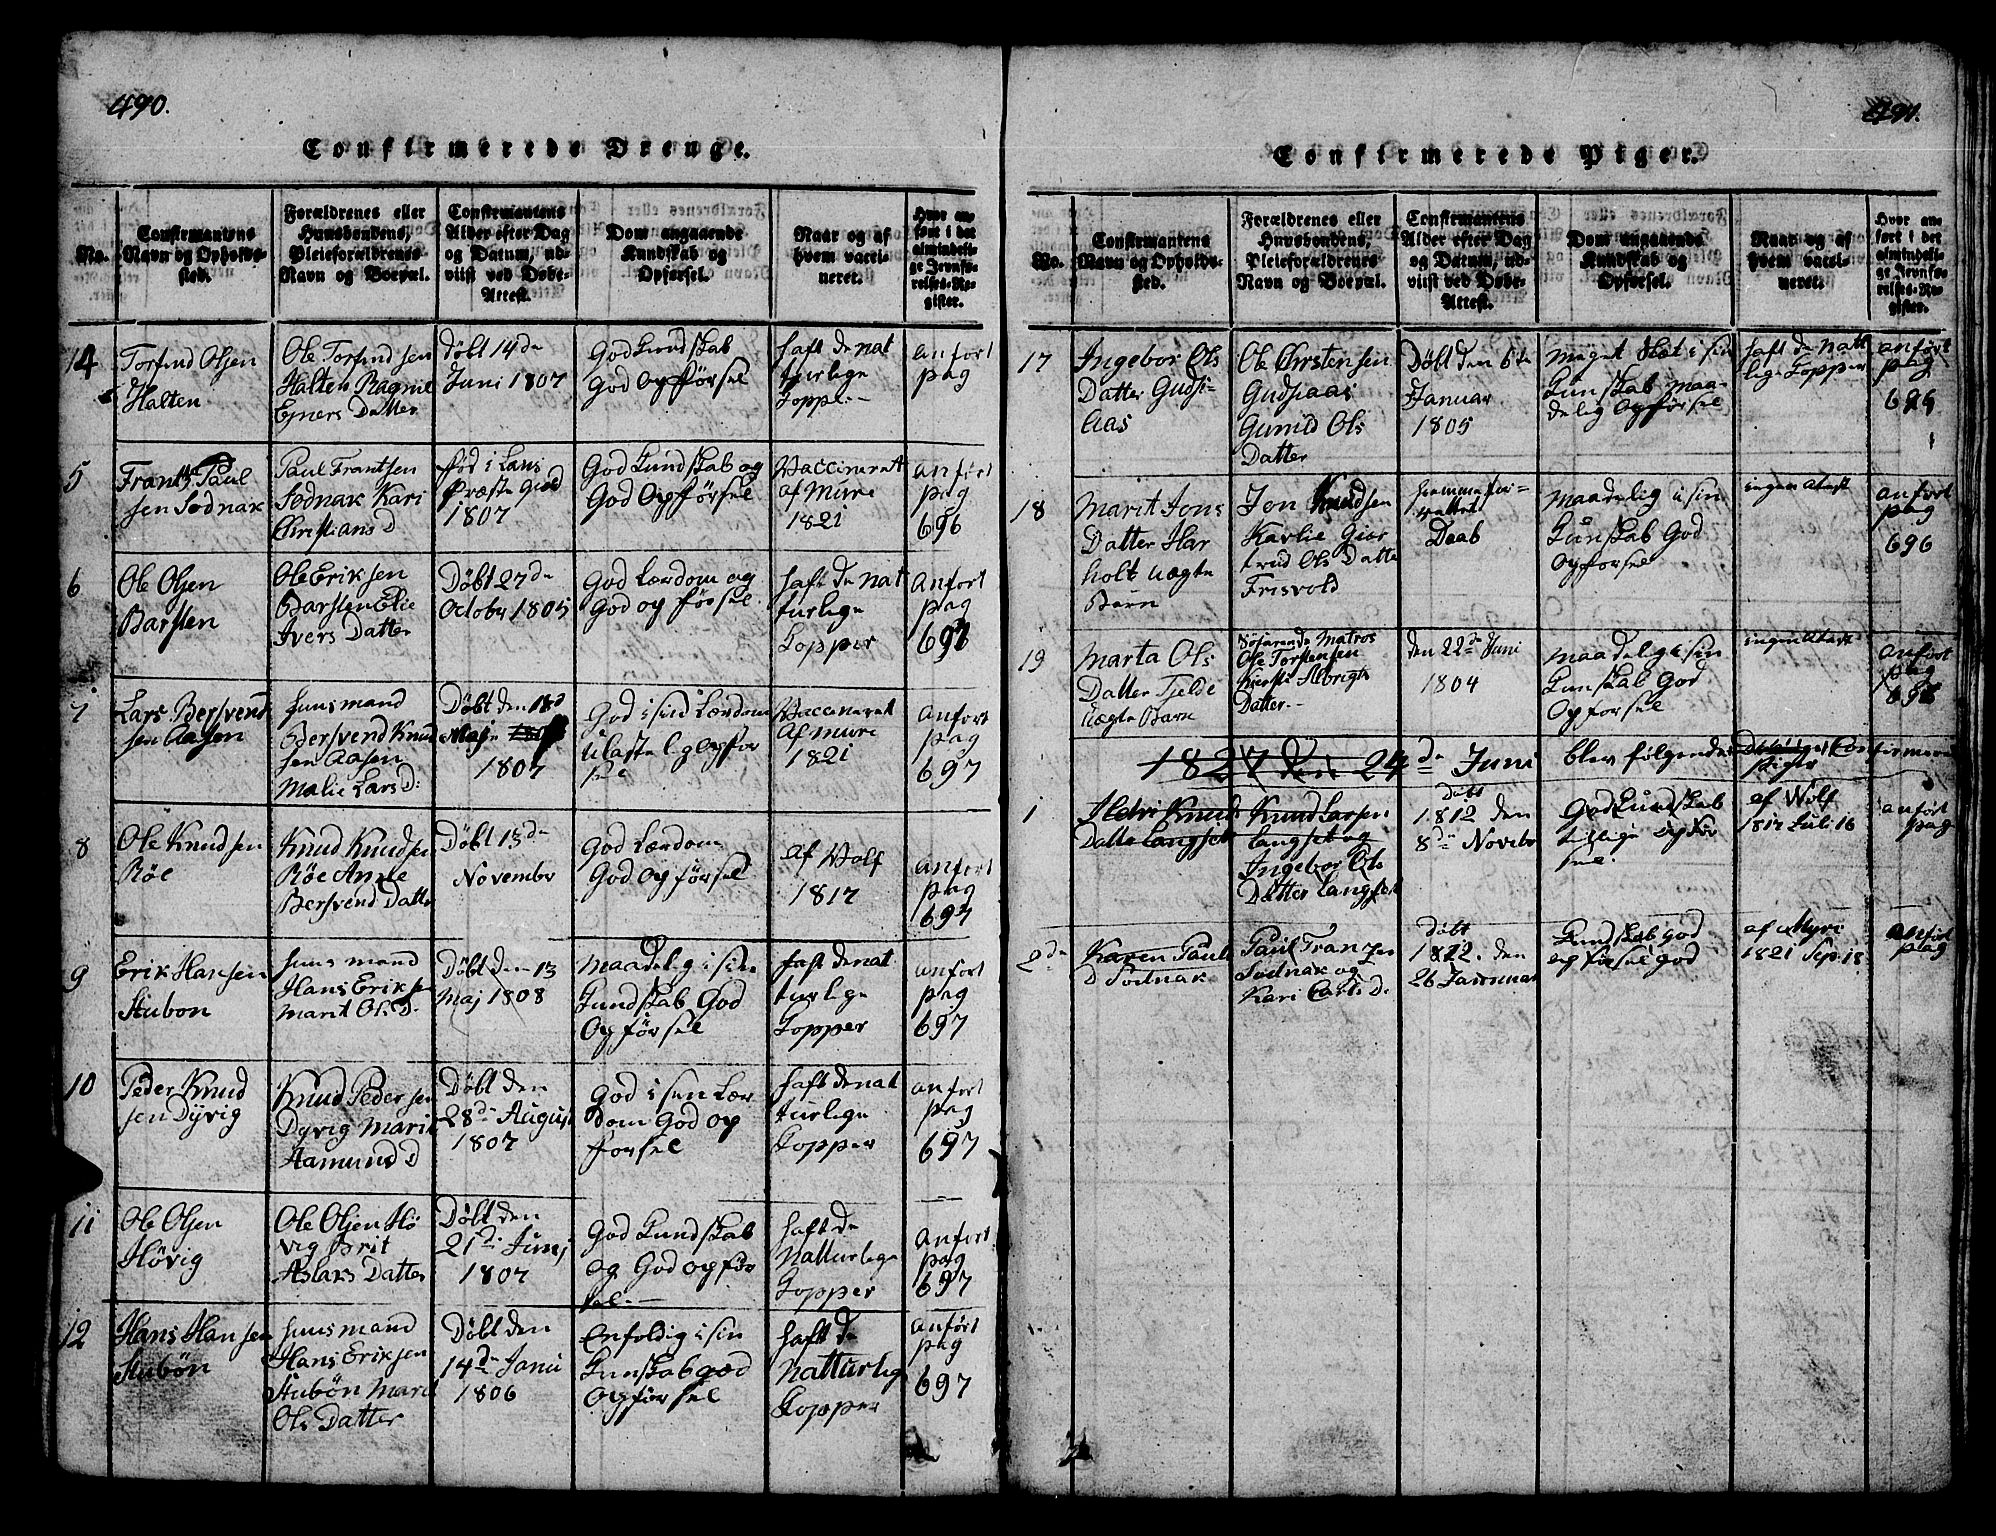 490.
Confirmerede Drenge.
No.
Confirmantens
Navn og Opholds-
sted.
Forældrenes eller
Huusbondens,
Pleieforældrenes
Navn og Boepæl.
Confirmantens
Alder efter Dag
og Datum, ud-
viist ved Døbe-
Attest.
Dom angaaende
Kundskab og
Opførsel.
Naar og af
hvem vacci-
neret.
Hvor an-
ført i det
almindeli-
ge Jevnfø-
relses-Re-
gister.
14
Torfind Olsen
Halten
Ole Torfindsen
Halten Ragnil
Egners Datter
Døbt 14de
Juni 1807
God Kundskab
God Opførsel
haft de nat
turlige
Kopper
anført
pag
5
Frantz Paul
sen Sodnak
Paul Frantsen
Sodnak Kari
Christians D
fød i Lans
Præste Gield
1807
God Kundskab og
God Opførsel
Vaccineret
af Muri
1821
anført
pag
696
6
Ole Olsen
Barsten
Ole Eriksen
Barsten Elie
Ivers Datter
Døbt 27de
October 1805
God Lærdom og
God opførsel
haft de nat
turlige
Kopper
Anfort
pag
697
7
Lars Bersvend
sen Aasen
Huusmand
Bersvend Knud
sen Aasen
Malie Lars D:
Døbt den 18d
Maji
1807
God i sin Lærdom
Ulastelig Opfør
sel
Vaccineret
af Muri
1821
anfort
pag
697
8
Ole Knudsen
Røe
Knud Knudsen
Røe Anne
Bersvend Datter
Døbt 13de
November
God Lærdom
God Opførsel
af Wolf
1817
anfort
pag
697
9
Erik Hansen
Stubon
Huusmand
Hans Eriksen
Marit Ols D.
Døbt den 13
Maj 1808
Maadelig i sin
Kundskab God
Opførsel
haft de nat
turlige
Kopper
anfort
pag
697
10
Peder Knud
sen Dyrvig
Knud Pedersen
Dyrvig Marit
Aamund D
Døbt den
28de August
1807
God i sin Lær
dom God op
forsel
haft de nat
turlige
Kopper
anfort
pag
697
11
Ole Olsen
Høvig
Ole Olsen Hø
vig Brit
Aslars Datter
Døbt den
21de Junj
1807
God Kundskab
og God opfør
sel.
haft de
Natturlige
Kopper
Anfort
pag
697
12
Hans Hansen
Stubøn
Huusmand
Hans Eriksen
Stubøn Marit
Ols Datter
Døbt den
14de Janu
1806
Enfoldig i sin
Kunskab god
Opførsel
haft de
Natturlig
Kopper
anført
pag
697
491.
Confirmerede Piger.
No.
Confirmantens
Navn og Opholds-
sted.
Forældrenes eller
Huusbondens,
Pleieforældrenes
Navn og Boepæl.
Confirmantens
Alder efter Dag
og Datum, ud-
viist ved Døbe-
Attest.
Dom angaaende
Kundskab og
Opførsel.
Naar og af
hvem vacci-
neret.
Hvor an-
ført i det
almindeli-
ge Jevnfø-
relses-Re-
gister.
17
Ingebor Ols
Datter Gudsi-
Aas
Ole Christensen
Gudsiaas
Gunild Ols
Datter
Døbt den 6te
Januar
1805
Meget slæt i sin
Kunskab maa-
delig opførsel
haft de natt
lige Kopper
anført
pag
18
Marit Jons
Datter Har
holt uægte
Barn
Jon Knudsen
Karlie Gier
trud Ols Datter
Frisvold
hiemmefor-
rettet
Daab
Maadelig i sin
Kunskab God
Opforsel
ingen atest
anfort
pag
696
19
Marta Ols
Datter Tjelde
uægte Barn
Søfarende Matros
Ole Torstensen
Kiersti Albrigts
Datter
den 22de Juni
1804
Maadelig i sin
Kunskab God
Opforsel
ingen atest
Anfort
pag
1827 den 24de Juni blev følgende Confirmeret
Piger
1
Ildri Knuds
Datter Langset
Knud Larsen
Langset og
Ingebor Ols
Datter Langset
Døbt
1812 den
8de Novebr
God Kundskab
tillige opfør
sel.
af Wolf
1817 Juli 16
anført
pag
2de
Karen Pauls
D Sodnak
Paul Franzen
Sodnak og
Kari Carls D.
Døbt
1812. den
26 Januuar
Kundskab god
opførsel god
af Myri
1821 Sep. 18
anført
pag